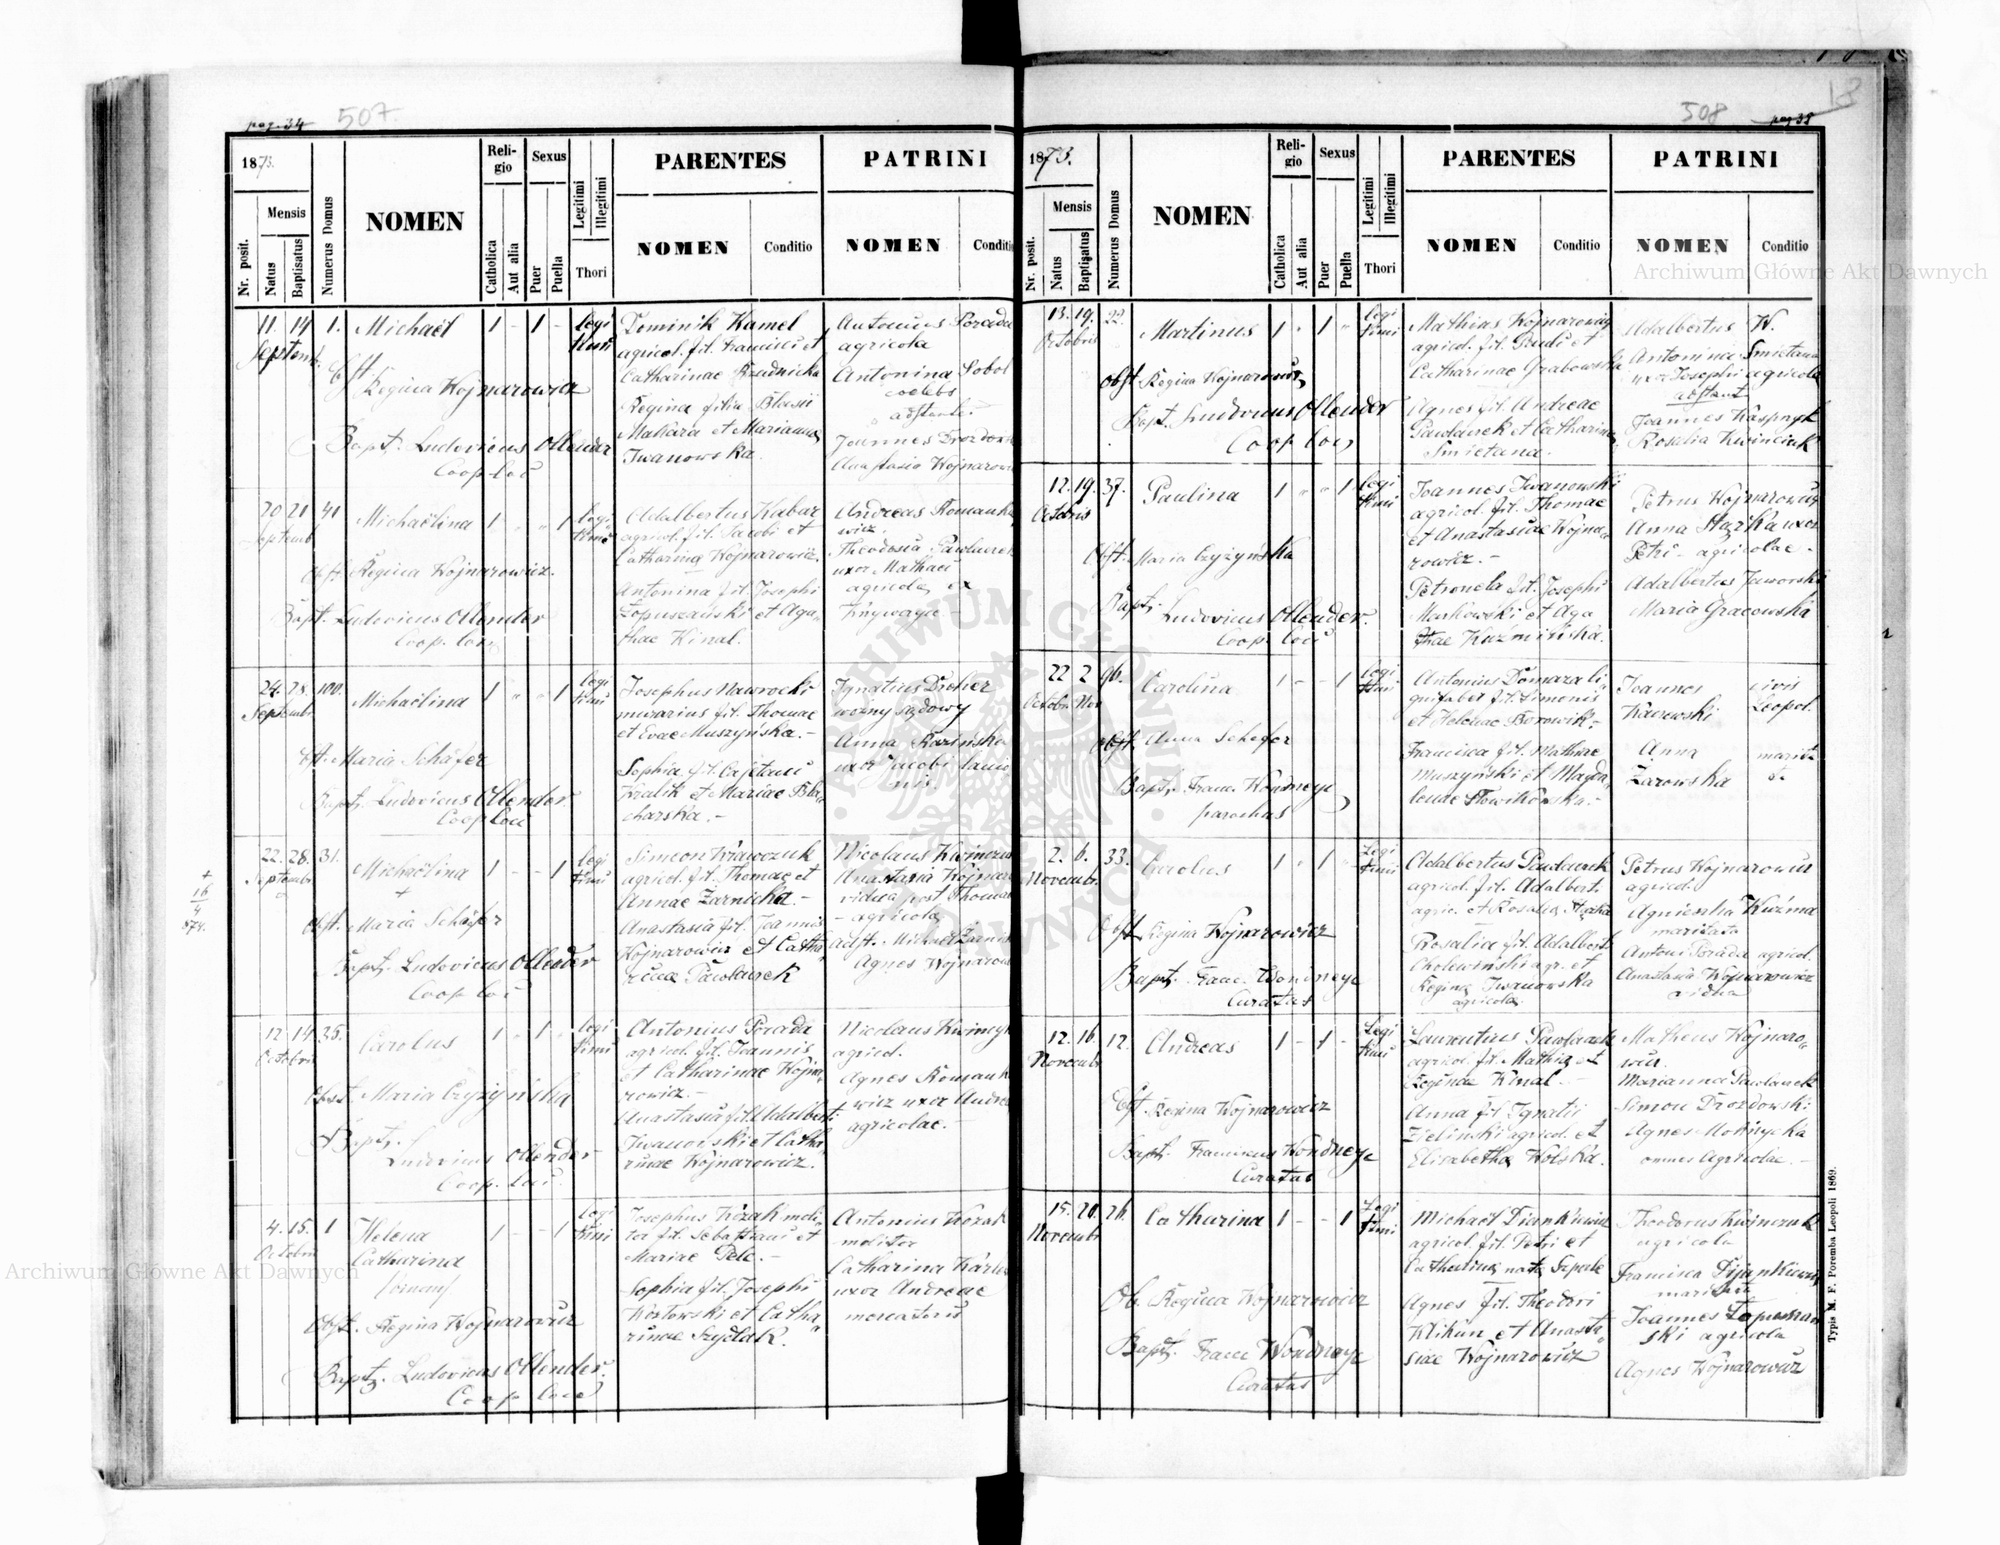 pag. 34 507.
1873.
Nr. posit.
Mensis
Natus
Baptisatus
Numerus Domus
NOMEN
Religio
Catholica
Aut alia
Sexus
Puer
Puella
Legitimi
Illegitimi
Thori
PARENTES
NOMEN
Conditio
PATRINI
NOMEN
Conditi
11. 14 Septemb. 1. Michaël 1 - 1 - legi
timi
Obst. Regina Wojnarowicz
Bapt. Ludovicus Ollender
Coop. loci
Dominik Kamel
agricol. fil. Francisci et
Catharinae Rudnicka
Regina filia Blasii
Makara et Marianna
Iwanowska.
Antonius Porada
agricola
Antonina Sobol
coelebs
adstante.
Joannes Drozdows
Anastasia Wojnarow
20 21 Septemb 41 Michaëlina 1 " " 1 legi
timi
Obst. Regina Wojnarowicz.
Bapt. Ludovicus Ollender
Coop. loci
Adalbertus Kabar
agricol. fil. Jacobi et
Catharina Wojnarowicz.
Antonina fil. Josephi
Łopuszański et Aga
thae Kinal.
Andreas Romanke
wicz.
Theodosia Pawlacrek
uxor Mathaei
agricola ex
Krzywczyc
24. 25. Septembr 100. Michaëlina 1 " " 1 legi
timi
Obst. Maria Schäfer
Bapt. Ludovicus Ollender
Coop loci
Josephus Nawrocki
murarius fil. Thomae
et Evae Muszyńska.
Sophia fil. Cajetani
Kralik et Mariae Bla
charska.
Ignatius Dreher
woźny sądowy
Anna Kozińska
uxor Jacobi lanio
nis.
+
16
4
874.
22. 28. Septembr 31. Michaëlina 1 - - 1 legi
timi
+
Obst. Maria Schäfer
Bapt. Ludovicus Ollender
Coop loci
Simeon Krawczuk
agricol. fil. Thomae et
Annae Żarnicka.
Anastasia fil. Joannis
Wojnarowicz et Catha
rinae Pawlaczek
Nicolaus Kwinczuk
Anastasia Wojnar
vidua post Thomam
agricola
adst. Michael Żarnis
Agnes Wojnarow
12. 14. Octobris 35. Carolus 1 " 1 " legi
timi
Obst. Maria Czyżyńska
Bapt.
Ludovicus Ollender
Coop. loci
Antonius Porada
agricol. fil. Joannis
et Catharinae Wojna
rowicz.
Anastasia fil. Adalberti
Iwanowski et Catha
rinae Wojnarowicz.
Nicolaus Kwinczyk
agricol.
Agnes Romank
wicz uxor Andre
agricolae.
4. 15. Octobris 1 Helena
Catharina 1 - - 1 legi
timi
Obst. Regina Wojnarowicz
Bapt. Ludovicus Ollender.
Coop loci
Josephus Kozak moli
tor fil. Sebastiani et
Mariae Pelc.
Sophia fil. Josephi
Kozłowski et Catha
rinae Szydlak.
Antonius Kozak
molitor
Catharina Karw
uxor Andreae
mercatoris
508 pag 35 13
1873.
Nr. posit.
Mensis
Natus
Baptisatus
Numerus Domus
NOMEN
Religio
Catholica
Aut alia
Sexus
Puer
Puella
Legitimi
Illegitimi
Thori
PARENTES
NOMEN
Conditio
PATRINI
NOMEN
Conditio
13. 19. Octobris 22. Martinus 1 " 1 " legi
timi
Obst Regina Wojnarowicz
Bapt. Ludovicus Ollender
Coop loci
Mathias Wojnarowicz
agricol. fil. Pauli et
Catharinae Grabowska
Agnes fil. Andreae
Pawlaczek et Catharin
Śmietana.
Adalbertus W.
Antonina Smietana
uxor Josephi agricola
adstant
Joannes Kasprzyk
Rosalia Kwinciuk
12. 19. Octobris 37. Paulina 1 " " 1 legi
timi
Obst. Maria Czyżyńska
Bapt.
Ludovicus Ollender.
Coop. loci
Joannes Iwanowski
agricol. fil. Thomae
et Anastasiae Wojna
rowicz.
Petronela fil. Josephi
Markowski et Aga
thae Kuzmińska.
Petrus Wojnarowicz
Anna Stazka uxor
Petri agricolae.
Adalbertus Jaworski
Maria Gracowska
22 2 Octobr. Nov 96. Carolina 1 - - 1 legi
timi
Obst. Anna Schefer
Bapt. Franc. Kondneye
parochus
Antonius Domaza li
gnifaber fil. Simonis
et Helenae Borowik
Francisca fil. Mathiae
Muszyński et Magda
lenae Słowikowska.
Joannes civis
Kaczewski Leopol.
Anna marita
Żarowska
2. 6. Novembr. 33. Carolus 1 " 1 " Legi
timi
Obst. Regina Wojnarowicz
Bapt. Franc. Wondneye
Curatus
Adalbertus Pawlaczek
agricol. fil. Adalbert.
agric. et Rosalia
Rosalia fil. Adalbert
Cholewiński agr. et
Regina Iwanowska
agricola
Petrus Wojnarowicz
agricol.
Agnieszka Kuźma
maritata
Antoni Porada agricol.
Anastasia Wojnarowicz
vidua
12. 16. Novembr 12. Andreas 1 - 1 - Legi
timi
Obst. Regina Wojnarowicz
Bapt. Franciscus Wondneye
Curatus
Laurentius Pawlaczek
agricol. fil. Mathia et
Reginae Kinal.
Anna fil Ignatii
Zieliński agricol. et
Elisabetha Wolska.
Matheus Wojnaro
wicz.
Marianna Pawlaczek
Simon Drozdowski
Agnes Mokrzycka
omnes Agricolae.
15. 20. Novembr 26. Catharina 1 - - 1 Legi
timi
Ob. Regina Wojnarowicz
Bapt. Franc Wondneye
Curatus
Michaël Diankiewicz
agricol. fil. Petri et
Catharina nata
Agnes fil. Theodori
Klikun et Anasta
siae Wojnarowicz
Theodorus Kwinczuk
agricola
Francisca Dijankiewicz
maritata
Joannes Łopuszań
ski agricola
Agnes Wojnarowicz
Typis M. F. Poremba Leopoli 1869.
Archiwum Główne Akt Dawnych
Archiwum Główne Akt Dawnych
ARCHIWUM GŁÓWNE AKT DAWNYCH